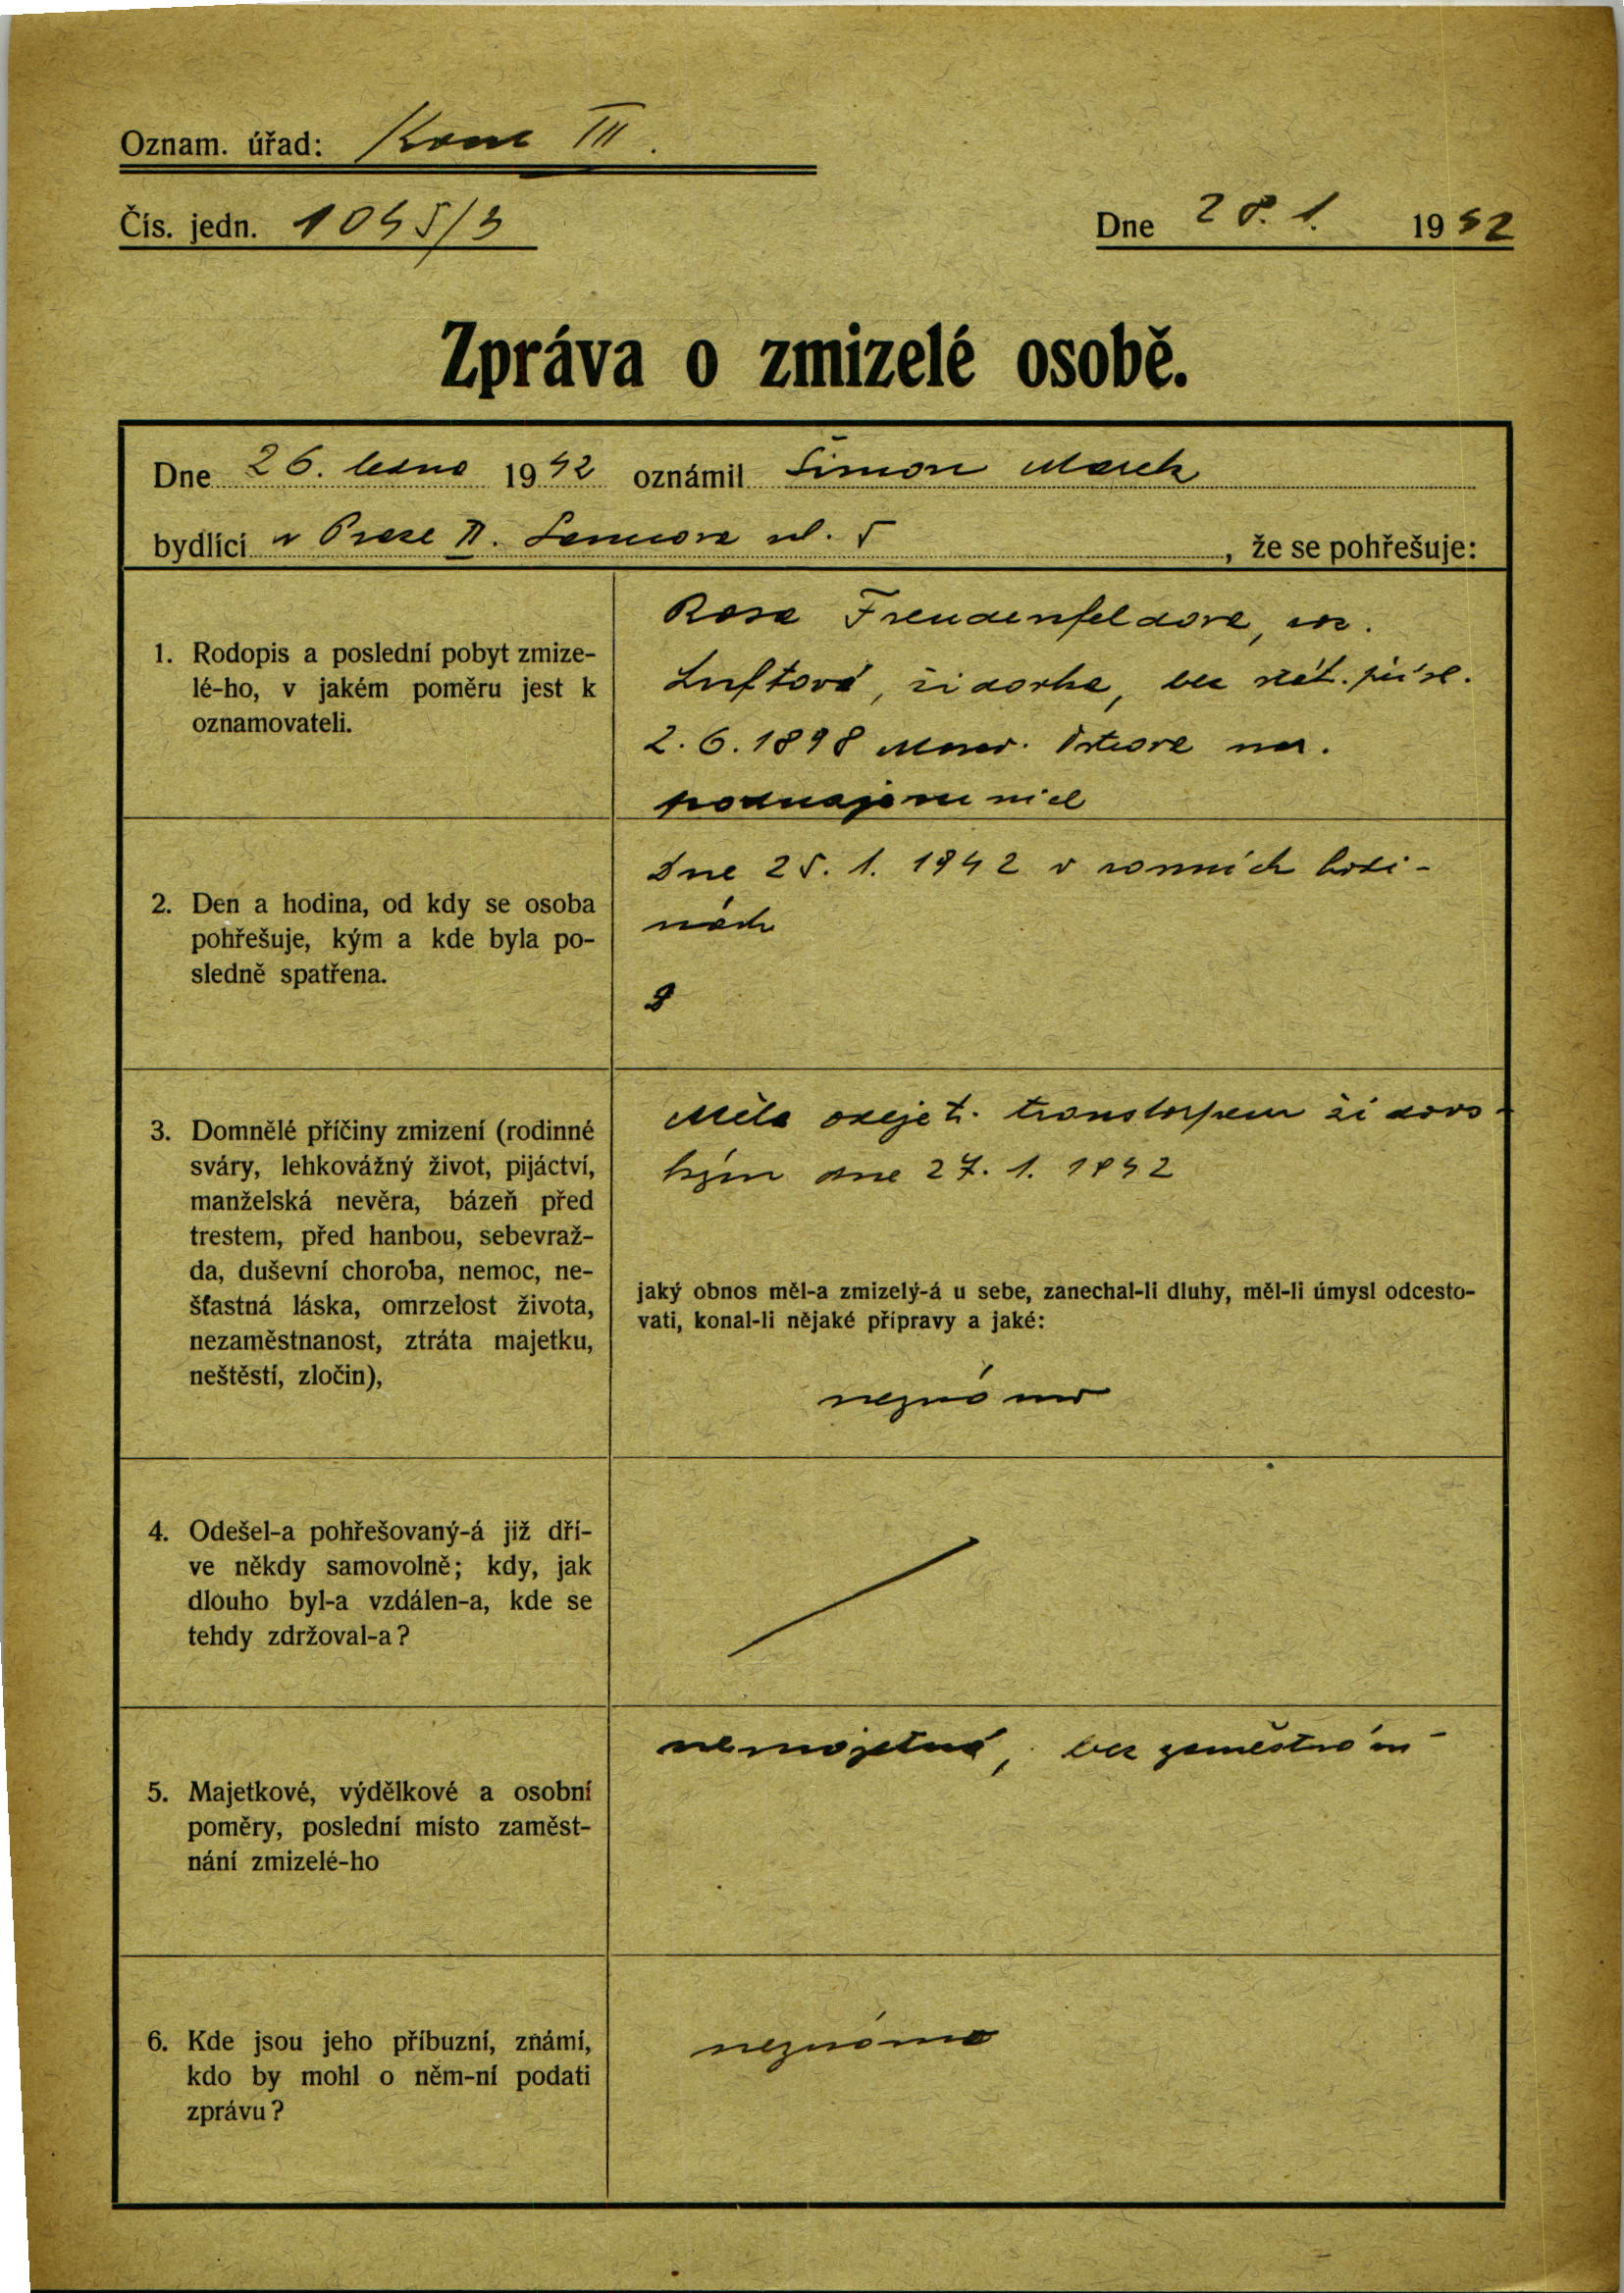 Oznam. úřad: Kom III.
Čís. jedn. 1045/3
Dne 28. 1. 1942
Zpráva o zmizelé osobě.
Dne 26. ledna 1942 oznámil Šimon Marek
bydlící v Praze II. ul. 5, že se pohřešuje:
1. Rodopis a poslední pobyt zmize-
lé-ho, v jakém poměru jest k
oznamovateli.
Rosa Freudenfeldova, roz.
Luftová, židovka, bez stát. přísl.
2. 6. 1898 Morav. Ostrava nar.
podnájemnice
2. Den a hodina, od kdy se osoba
pohřešuje, kým a kde byla po-
sledně spatřena.
Dne 25. 1. 1942 v ranních hodi-
nách
3. Domnělé příčiny zmizení (rodinné
sváry, lehkovážný život, pijáctví,
manželská nevěra, bázeň před
trestem, před hanbou, sebevraž-
da, duševní choroba, nemoc, ne-
šťastná láska, omrzelost života,
nezaměstnanost, ztráta majetku,
neštěstí, zločin),
Měla odejeti transtorpem židovs-
kým dne 27. 1. 1942
jaký obnos měl-a zmizelý-á u sebe, zanechal-li dluhy, měl-li úmysl odcesto-
vati, konal-li nějaké přípravy a jaké:
neznámo
4. Odešel-a pohřešovaný-á již dří-
ve někdy samovolně; kdy, jak
dlouho byl-a vzdálen-a, kde se
tehdy zdržoval-a?
5. Majetkové, výdělkové a osobní
poměry, poslední místo zaměst-
nání zmizelé-ho
nemajetná, bez zaměstnání
6. Kde jsou jeho příbuzní, známí,
kdo by mohl o něm-ní podati
zprávu?
neznámo